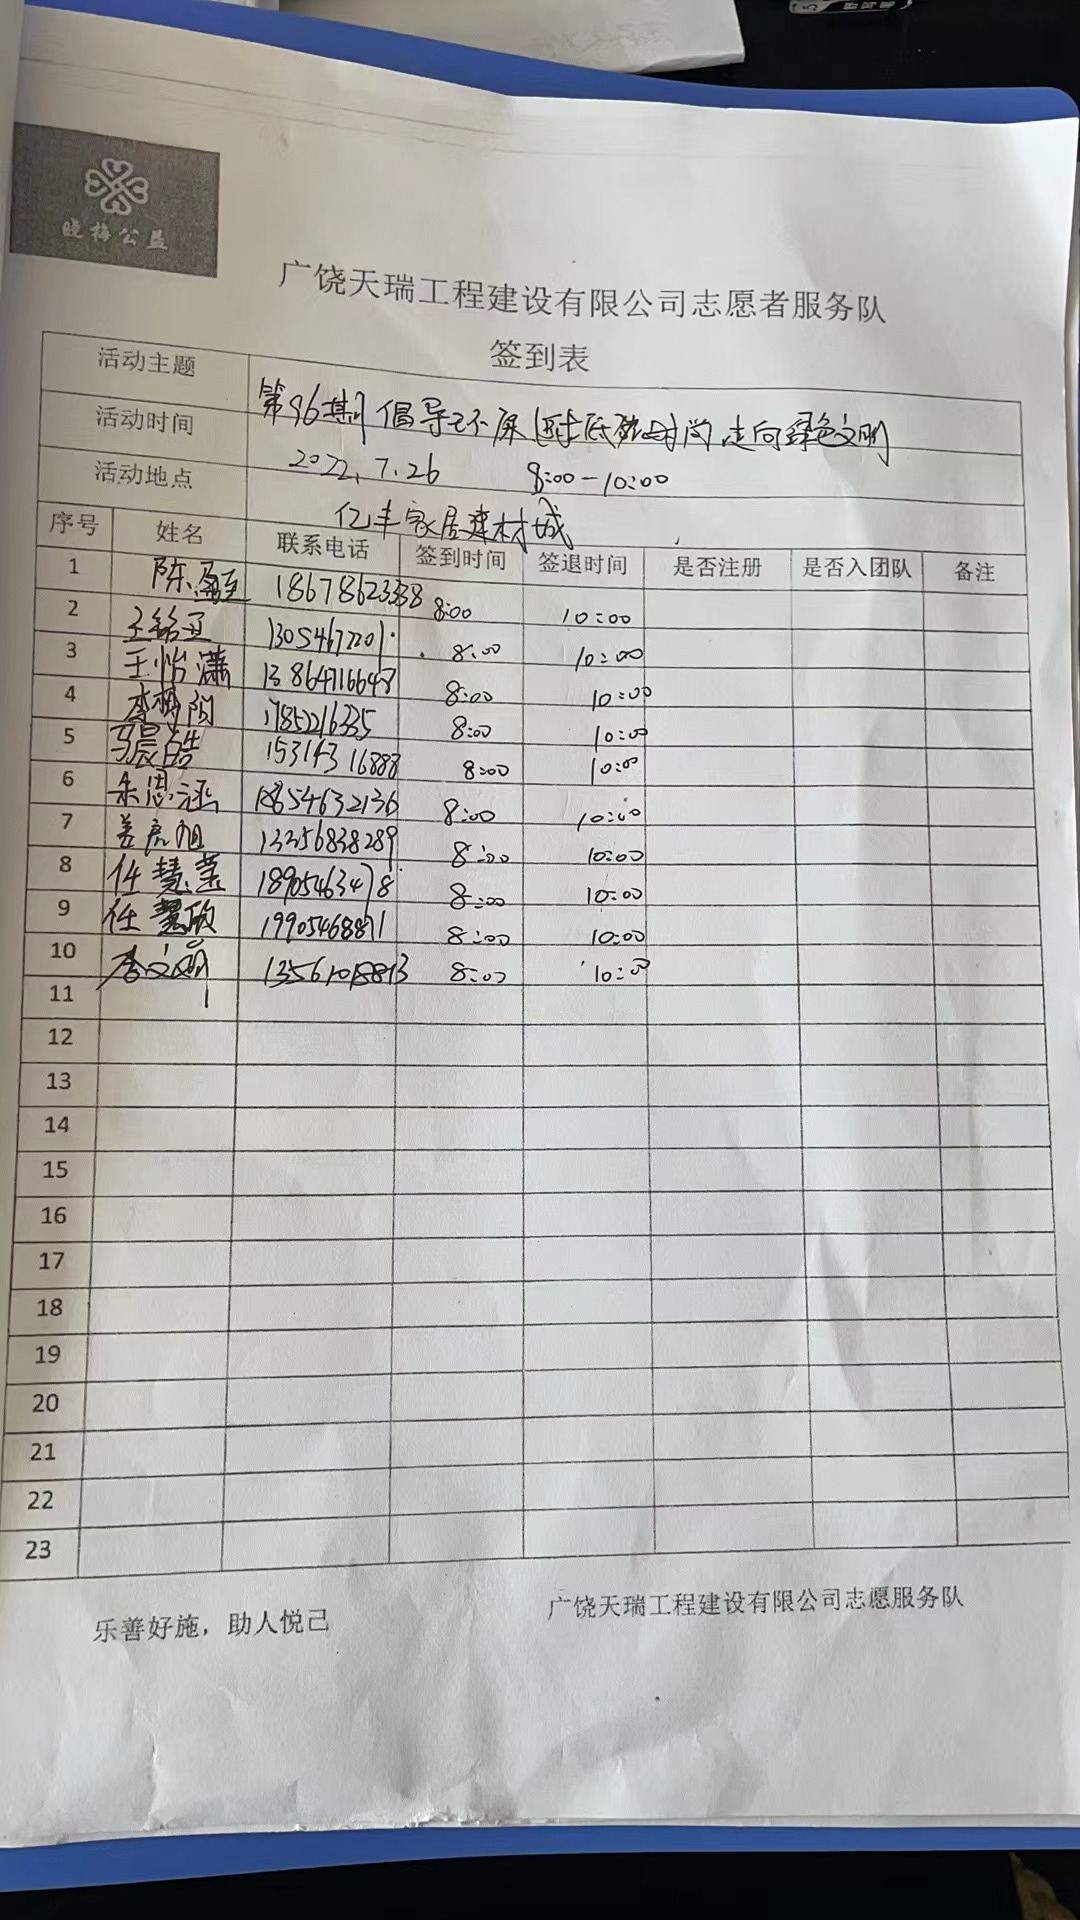 晓梅公益
广饶天瑞工程建设有限公司志愿者服务队
签到表
活动主题 第96期 倡导环保 低碳时尚 走向绿色文明
活动时间 2022.7.26 8:00-10:00
活动地点 亿丰家居建材城
序号 姓名 联系电话 签到时间 签退时间 是否注册 是否入团队 备注
1 陈 18678623338 8:00 10:00
2 王铭 13054672201 8:00 10:00
3 王怡潇 13864716648 8:00 10:00
4 李 17852216335 8:00 10:00
5 马晨皓 15314316888 8:00 10:00
6 朱思涵 18654632136 8:00 10:00
7 姜虎旭 13356838289 8:00 10:00
8 任慧 18905463478 8:00 10:00
9 任慧欣 19905468871 8:00 10:00
10 李文 8:00 10:00
11
12
13
14
15
16
17
18
19
20
21
22
23
乐善好施，助人悦己
广饶天瑞工程建设有限公司志愿服务队